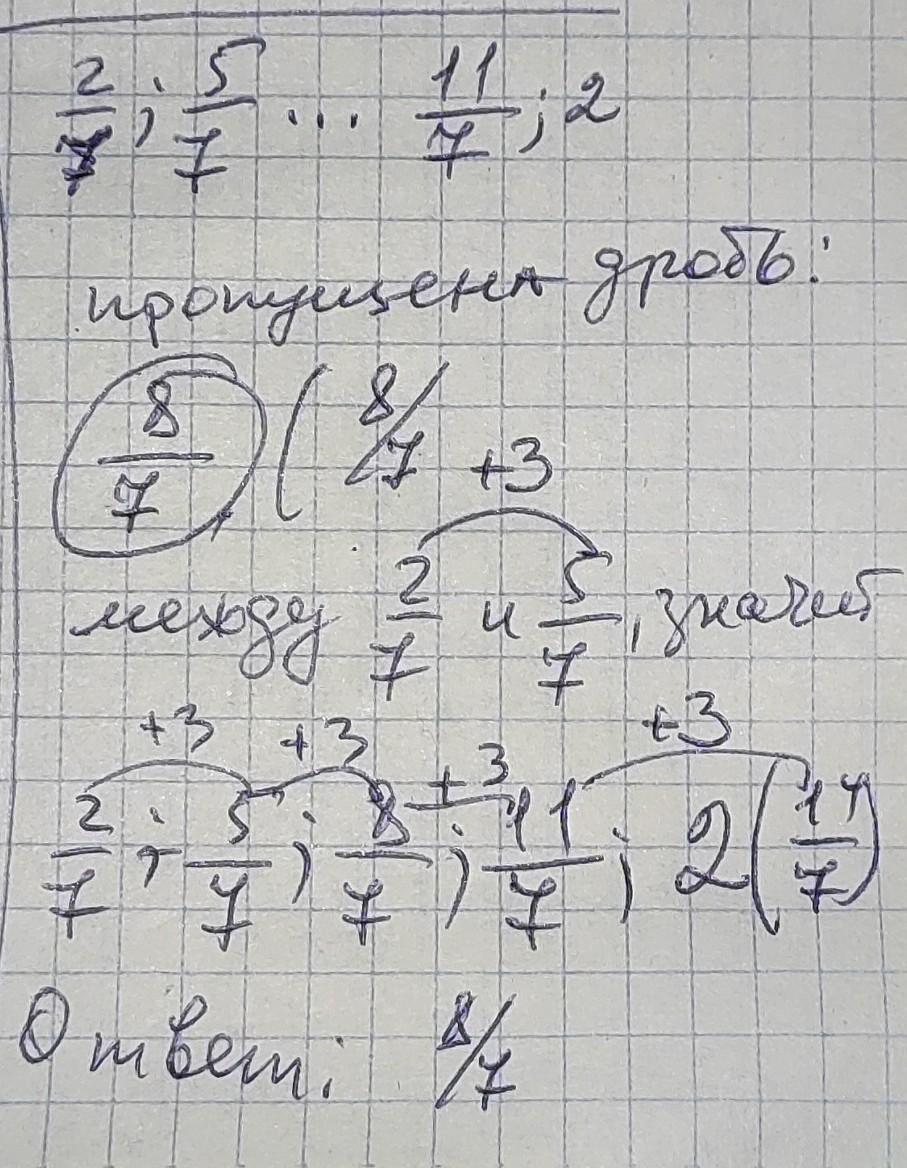 2/7 ; 5/7 ... 11/7 ; 2
пропущена дробь:
8/7 ( 8/7
+3
между 2/7 и 5/7, значит
+3 +3 +3 +3
2/7 ; 5/7 ; 8/7 ; 11/7 ; 2 (14/7)
Ответ: 8/7